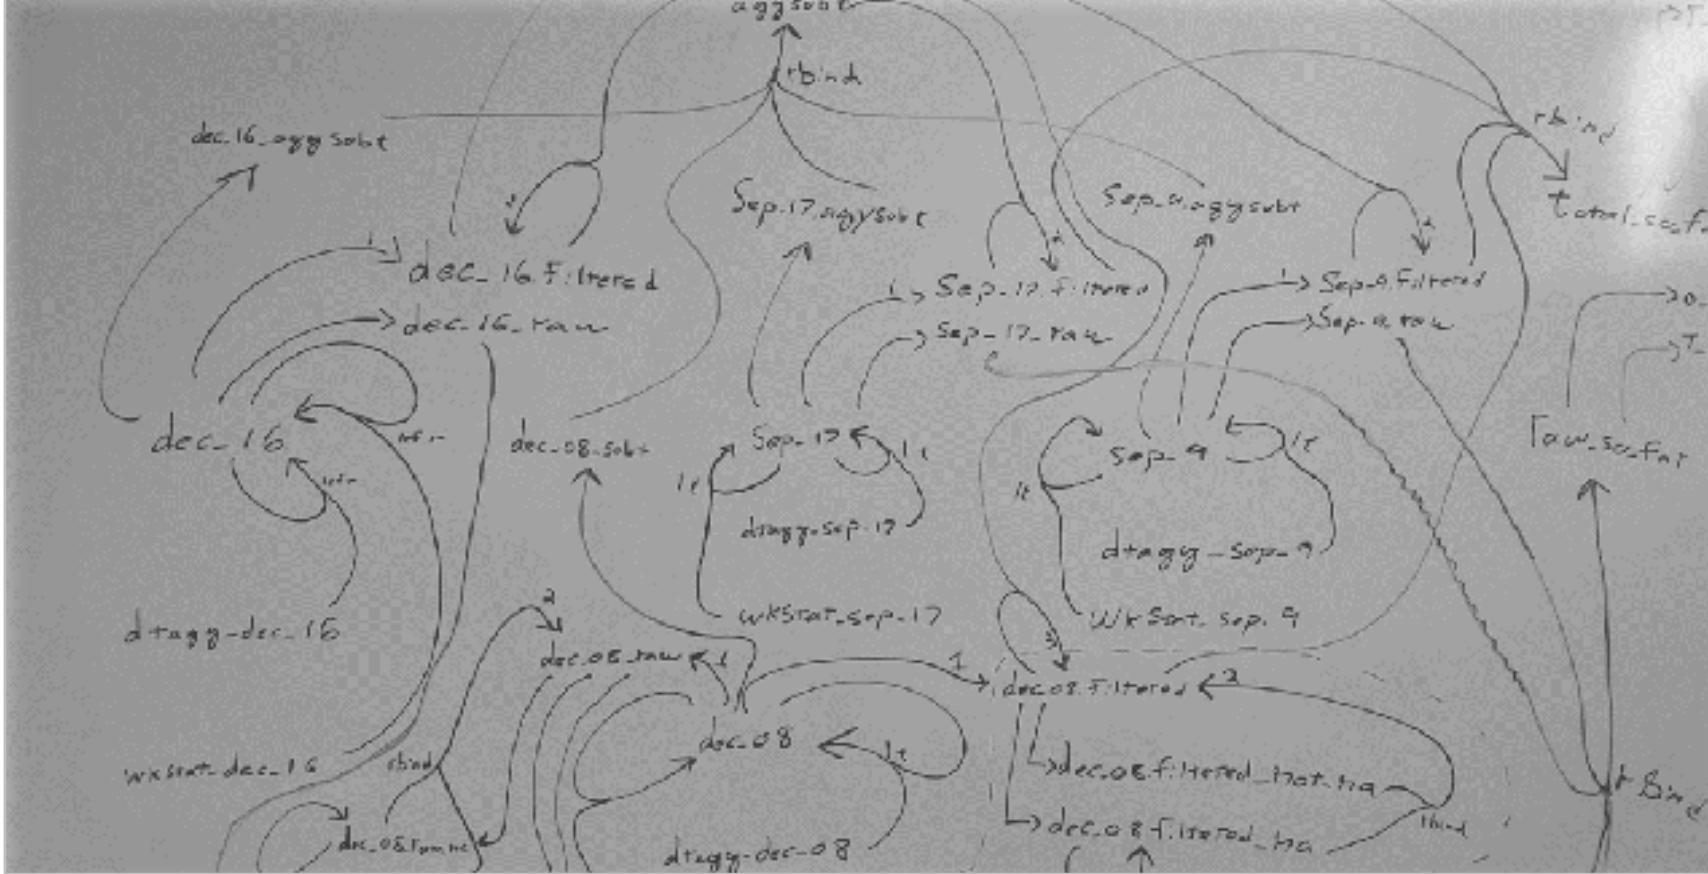 aggsubt
rbind
rbind
dec_16_aggsubt
Sep_17_aggsubt
Sep_9_aggsubt
1
2
dec_16.filtered
dec_16_raw
1
2
Sep_17.filtered
Sep_17_raw
1
2
Sep_9.filtered
Sep_9_raw
dec_16
dec_08_subt
Sep_17
lt
lt
Sep_9
lt
lt
dtagg_sep_17
dtagg_sep_9
dtagg-dec_16
wkStat_sep_17
WkStat_sep_9
2
dec_08_raw
1
1
3
dec_08.filtered
2
dec_08
lt
wkstat_dec_16
rbind
dec_08.filtered_not_na
dec_08.filtered_na
rbind
rBind
dtagg-dec_08